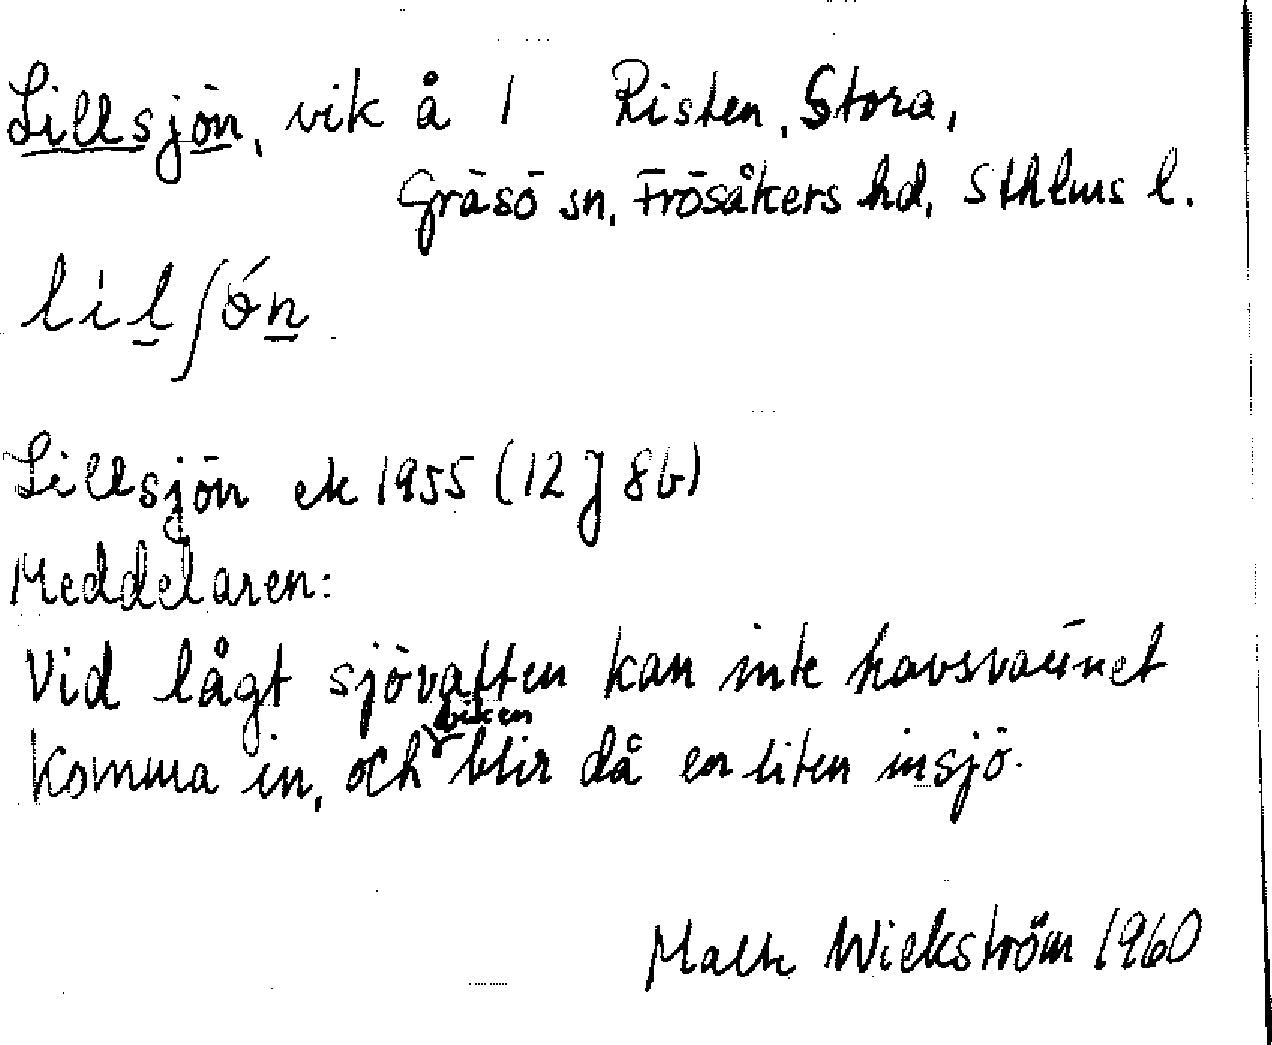 Lillsjön, vik å 1 Risten, Stora,
Gräsö sn, Frösåkers hd, Sthlms l.
lilʃǿn
Lillsjön ek 1955 (12 J 8b)
Meddelaren:
Vid lågt sjövatten kan inte havsvattnet
viken
komma in, och blir då en liten insjö.
Malte Wickström 1960